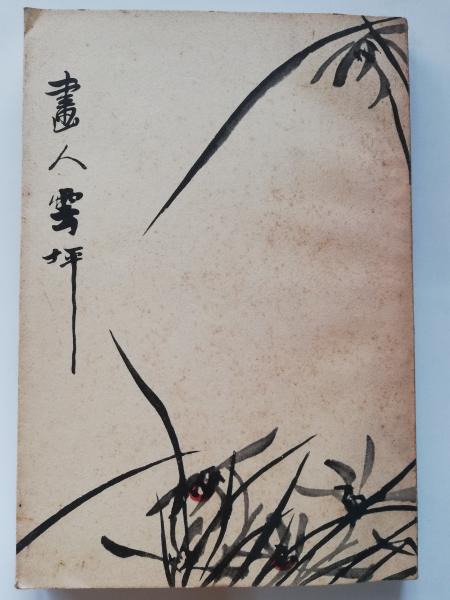 畫人雲坪